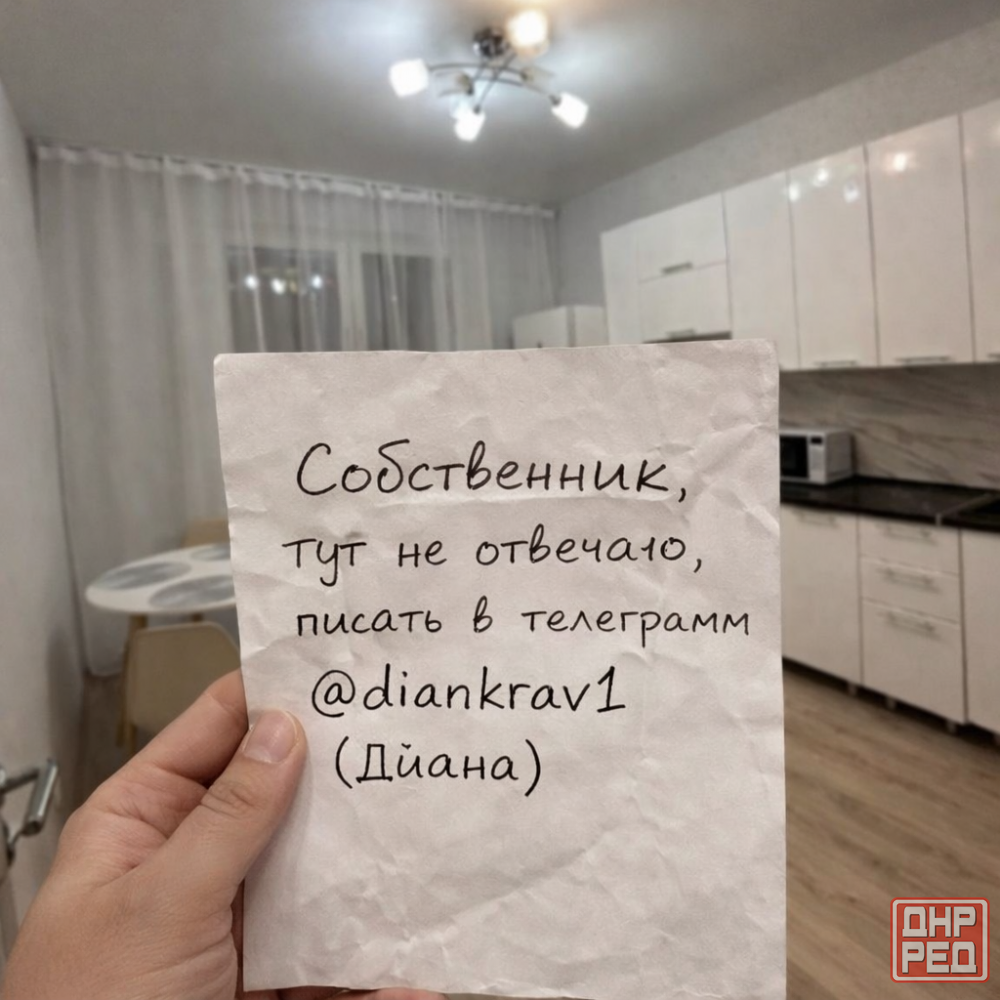 Собственник,
тут не отвечаю,
писать в телеграмм
@diankrav1
(Дйана)
ДНР
РЕД